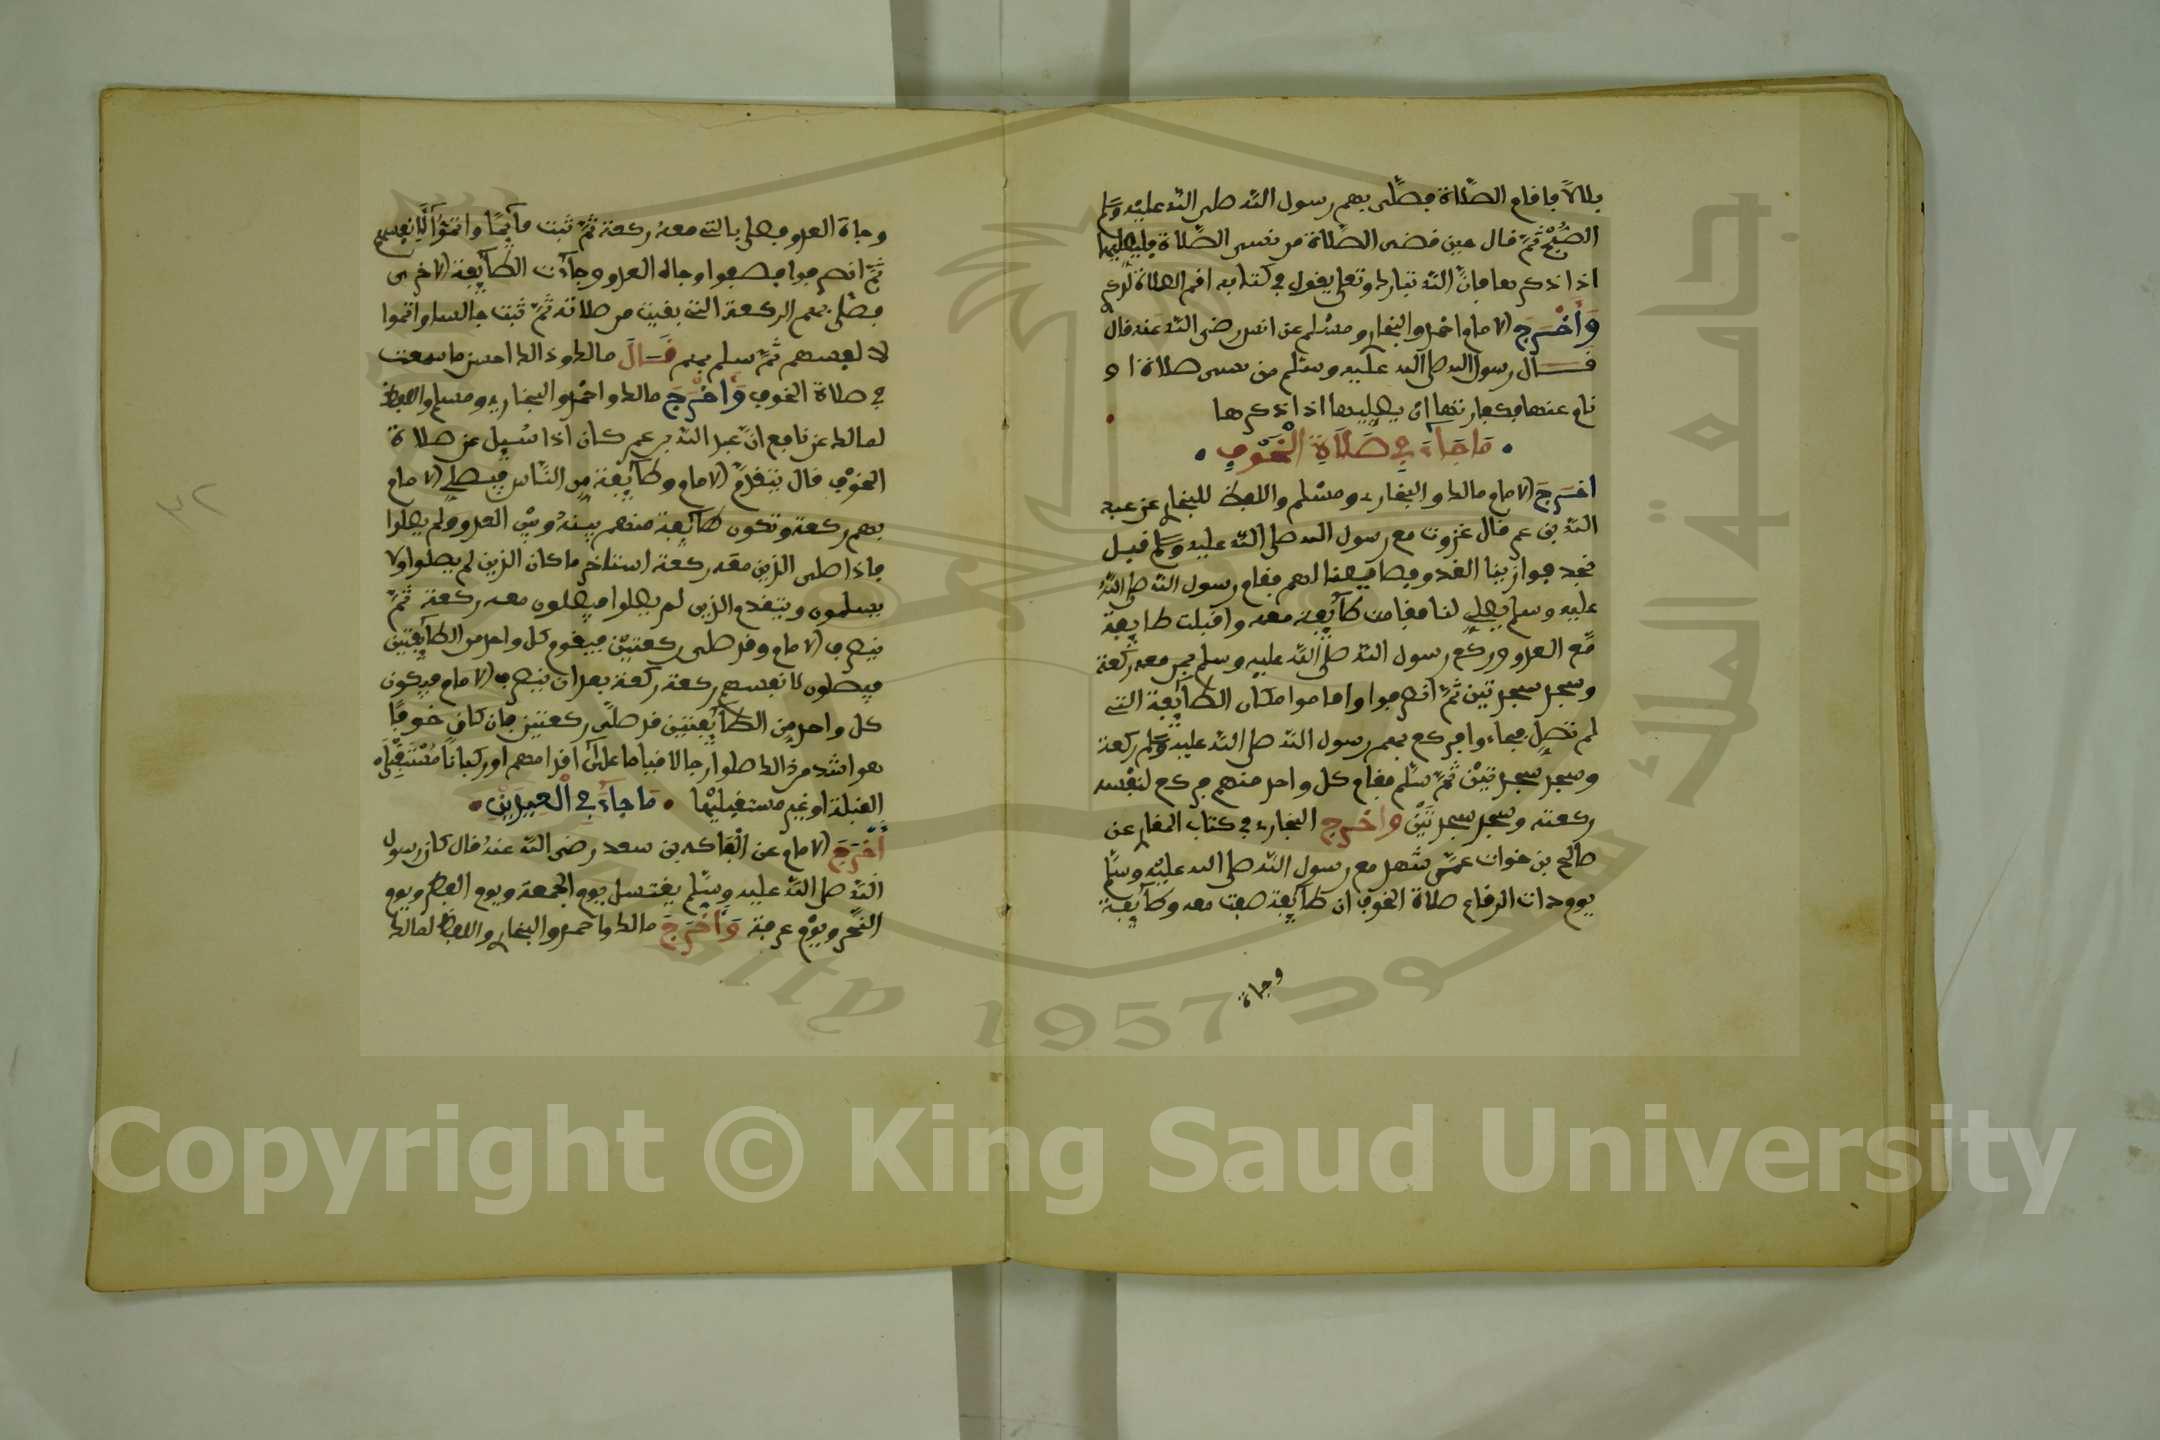 بلالا فأقام الصَّلاة فصَلَّى بهم رسول اللّه صلى اللّه عليه وسلم
الصُّبح ثمّ قال حين قضى الصَّلاة من نسى الصَّلاة فليصليها
اذا ذكرها فإنّ اللّه تبارك وتعلى يقول في كتابه اقم الصلاة لذكرى
وَأخْرَجَ الامام احمد والبخارى ومسْلم عن انس رضى اللّه عنه قال
قــــال رسول الله صلى الله عليه وسلم من نسى صلاة او
نام عنها فكفارتها ان يصليها اذا ذكرها
مَا جَاءَ فِي صَلَاةِ الْخَوْفِ
اخرَجَ الامام مالك والبخارى ومسْلم واللفظ للبخارى عن عبد
اللّه بن عمر قال غزوت مع رسول الله صلى اللّه عليه وسلم قبل
نجد فوازينا العدو فصاففنا لهم فقام رسول اللّه صلى اللّه
عليه وسلم يصلي لنا فقامت طآئفة معه واقبلت طايفة
مّع العدو وركع رسول اللّه صلى اللّه عليه وسلم بمن معه ركعة
وسجد سجدتين ثمّ انصرفوا واقاموا مكان الطآئفة التى
لم تصل فجاءوا فركع بهم رسول اللّه صلى اللّه عليه وسلم ركعة
وسجد سجدتيْن ثمّ سلّم فقام كل واحد منهم فركع لنفْسه
ركعة وسجد سجدتَيْن وأخْرج البخارى في كتاب المغازى عن
صالح بن خوات عمّن شهد مع رسول اللّه صلى الله عليْه وسلّم
يوم ذات الرقاع صلاة الخوف ان طآئفة صفت معه وطآئفة
وجاة
وجاة العدو فصلى بالتى معه ركعة ثمّ ثبت قآئمًا واتمّوا لأنفسهم
ثمّ انصرفوا فصفوا وجاه العدو وجآءت الطآئفة الاخرى
فصلّى بهم الركعة التى بقيت من صلاته ثمّ ثبت جالسا واتموا
لانفسهم ثمّ سلم بهم قَــالَ مالك وذالك احسن ما سمعت
في صلاة الخوف وَأخْرَجَ مالك واحمْد والبخارى ومسلم واللفظ
لمالك عن نافع انّ عبد اللّه بن عمر كان اذا سُيل عن صلاة
الخوْف قال يتقدّم الامام وطآئفة من النّاس فيصلي الامام
بهم ركعة وتكون طآئفة منهم بينهُ وبيْن العدو ولم يصلوا
فإذا صلى الذين معه ركعة استاخر مكان الذين لم يصلوا ولا
يسلمون ويتقدم الذين لم يصلوا فيصلون معه ركعة ثمّ
ينصرف الامام وقد صلى ركعتيْن فيقوم كل واحد من الطآئفتين
فيصلون لانفسهم ركعة ركعة بعد ان ينصرف الامام فيكون
كل واحد من الطآئفتين قد صلّى ركعتين فإن كان خوفًا
هو اشد من ذالك صلوا رجالا قياما على اقدامهم او ركبانًا مُسْتقبلى
القبلة او غير مستقبليْها • مَا جَاءَ فِي الْعِيدَيْنِ •
أَخْرَجَ الامام عن الفاكه بن سعد رضى اللّه عنهُ قال كان رسول
اللّه صلى اللّه عليه وسلّم يغتسل يوم الجمعة ويوم الفطر ويوم
النّحر ويوْم عرفة وَأخْرَجَ مالك واحمد والبخارى واللفظ لمالك
٣٢
جامعة الملك سعود
1957
Copyright © King Saud University